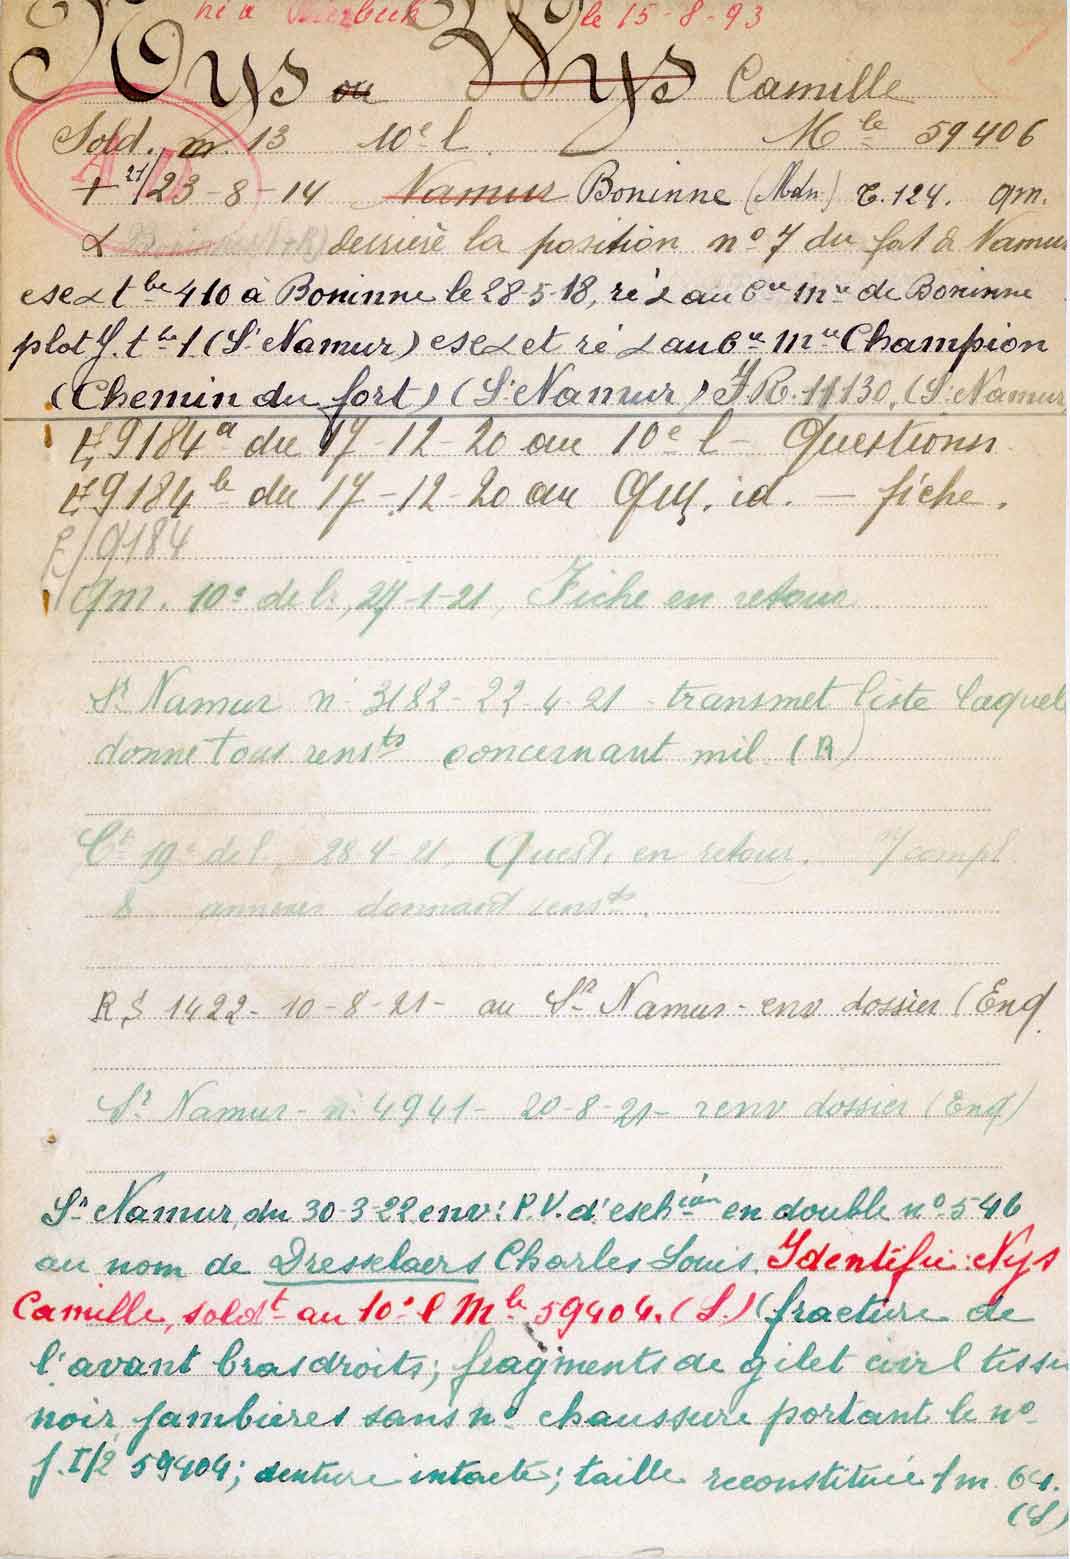 né à le 15-8-93
Nys ou Wys Camille
Sold. m. 13 10e l. Mle 59406
+ 21/23-8-14 Namur Boninne (Mdn.) E.124. qm.
derrière la position no 7 du fort de Namur
esex tbe 410 à Boninne le 28-5-18, ré x au Cre Mre de Boninne
plot J. tbe 1 (Sr Namur) esex et ré x au Cre Mre Champion
(Chemin du fort) (Sr Namur) J.R. 11130. (Sr Namur)
E 9184a du 17-12-20 au 10e l - Questionn.
E 9184b du 17-12-20 au id. - fiche.
E/9184
qm. 10e de l. 27-1-21, Fiche en retour
Sr Namur n° 3182 - 22-4-21 - transmet liste laquel
donne tous rensts concernant mil (R)
Ct 19e de l. 28-4-21. Quest. en retour. 7 compl
8 annexes donnant rensts.
RS 1422 - 10-8-21 - au Sr Namur - env dossier (Enq.
Sr Namur - n° 4941 - 20-8-21 - renv dossier (Enq)
Sr Namur, du 30-3-22 env: P.V. d'eschion en double no 546
au nom de Dresselaers Charles Louis. Identifié: Nys
Camille, soldt au 10e l Mle 59404. (S.) (fracture de
l'avant bras droits; fragments de gilet civil tissu
noir, jambières sans no chaussure portant le no
f. I/2 59404; denture intacte; taille reconstituée 1m. 64.
(S)